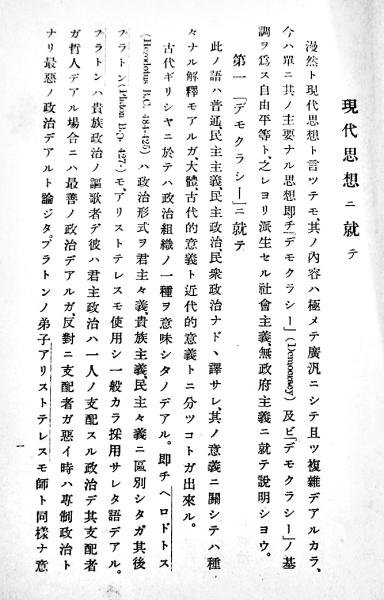 現代思想ニ就テ
漫然ト現代思想ト言ツテモ、其ノ內容ハ極メテ廣汎ニシテ且ツ複雜デアルカラ、
今ハ單ニ其ノ主要ナル思想即チ「デモクラシー」(Democracy)及ビ「デモクラシー」ノ基
調ヲ爲ス自由平等ト、之レヨリ派生セル社會主義、無政府主義ニ就テ說明シヨウ。
第一「デモクラシー」ニ就テ
此ノ語ハ普通民主主義、民主政治、民衆政治ナドヽ譯サレ、其ノ意義ニ關シテハ種
々ナル解釋モアルガ、大體、古代的意義ト近代的意義トニ分ツコトガ出來ル。
古代ギリシヤニ於テハ政治組織ノ一種ヲ意味シタノデアル。即チヘロドトス
(Herodotus B.C. 484-425)ハ政治形式ヲ君主々義、貴族主義、民主々義ニ區別シタガ其後
プラトン(Platon B.C. 427-)モ、アリストテレスモ使用シ一般カラ採用サレタ語デアル。
プラトンハ貴族政治ノ謳歌者デ彼ハ君主政治ハ一人ノ支配スル政治デ其支配者
ガ哲人デアル場合ニハ最善ノ政治デアルガ、反對ニ支配者ガ惡イ時ハ專制政治ト
ナリ最惡ノ政治デアルト論ジタ。プラトンノ弟子アリストテレスモ師ト同樣ナ意
一